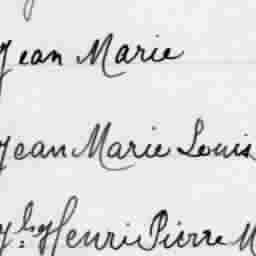 Jean Marie
Jean Marie Louis
Henri Pierre